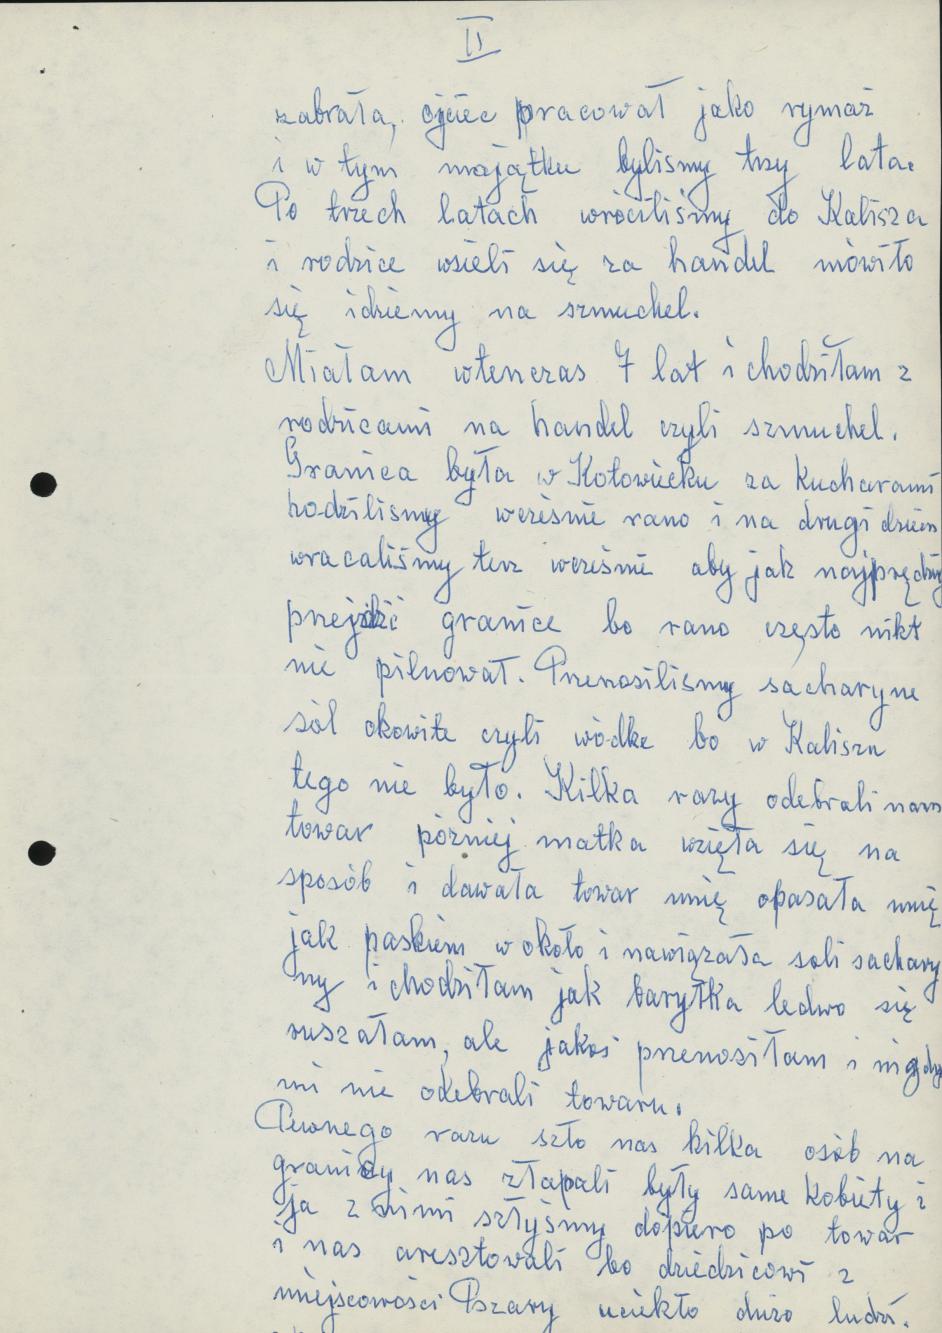 II
zabrała, ojciec pracował jako rymaż
i w tym majątku byliśmy trzy lata.
Po trzech latach wróciliśmy do Kalisza
i rodzice wzieli się za handel mówiło
się idziemy na szmuchel.
Miałam wtenczas 7 lat i chodziłam z
rodzicami na handel czyli szmuchel.
Granica była w Kotowiecku za Kucharami
hodziliśmy wcześnie rano i na drugi dzień
wracaliśmy tesz wcześnie aby jak najprędzej
przejść granice bo rano często nikt
nie pilnował. Przenosiliśmy sacharyne
sól okowite czyli wódke bo w Kaliszu
tego nie było. Kilka razy odebrali nam
towar później matka wzięła się na
sposób i dawała towar mnię opasała mnię
jak paskiem w około i nawiązała soli sachary
ny i chodziłam jak baryłka ledwo się
ruszałam, ale jakoś przenosiłam i nigdy
mi nie odebrali towaru.
Pewnego razu szło nas kilka osób na
granicy nas złapali były same kobiety i
ja z nimi szłyśmy dopiero po towar
i nas aresztowali bo dziedzicowi z
miejscowości Pszary uciekło dużo ludzi.